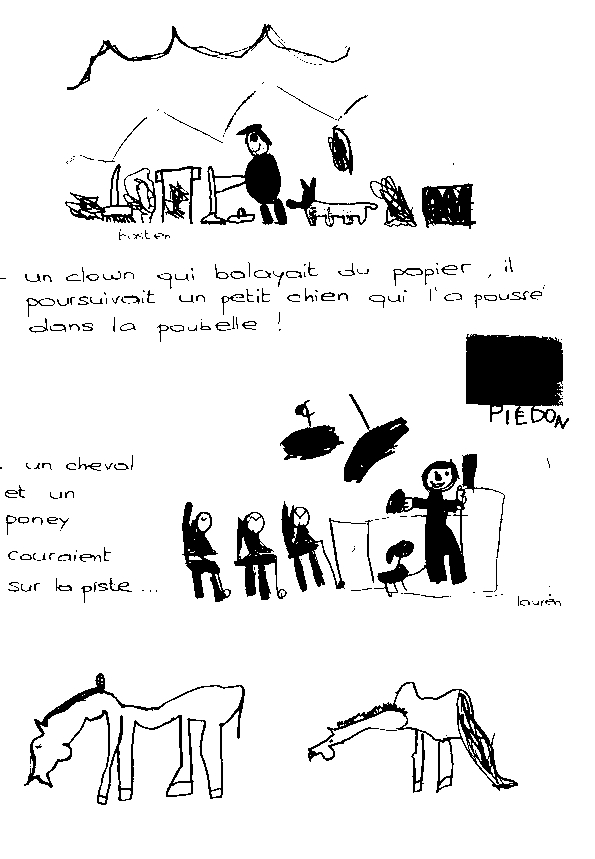 tristan
- un clown qui balayait du papier, il
poursuivait un petit chien qui l'a poussé
dans la poubelle !
PIEDON
- un cheval
et un
poney
couraient
sur la piste ...
lauren